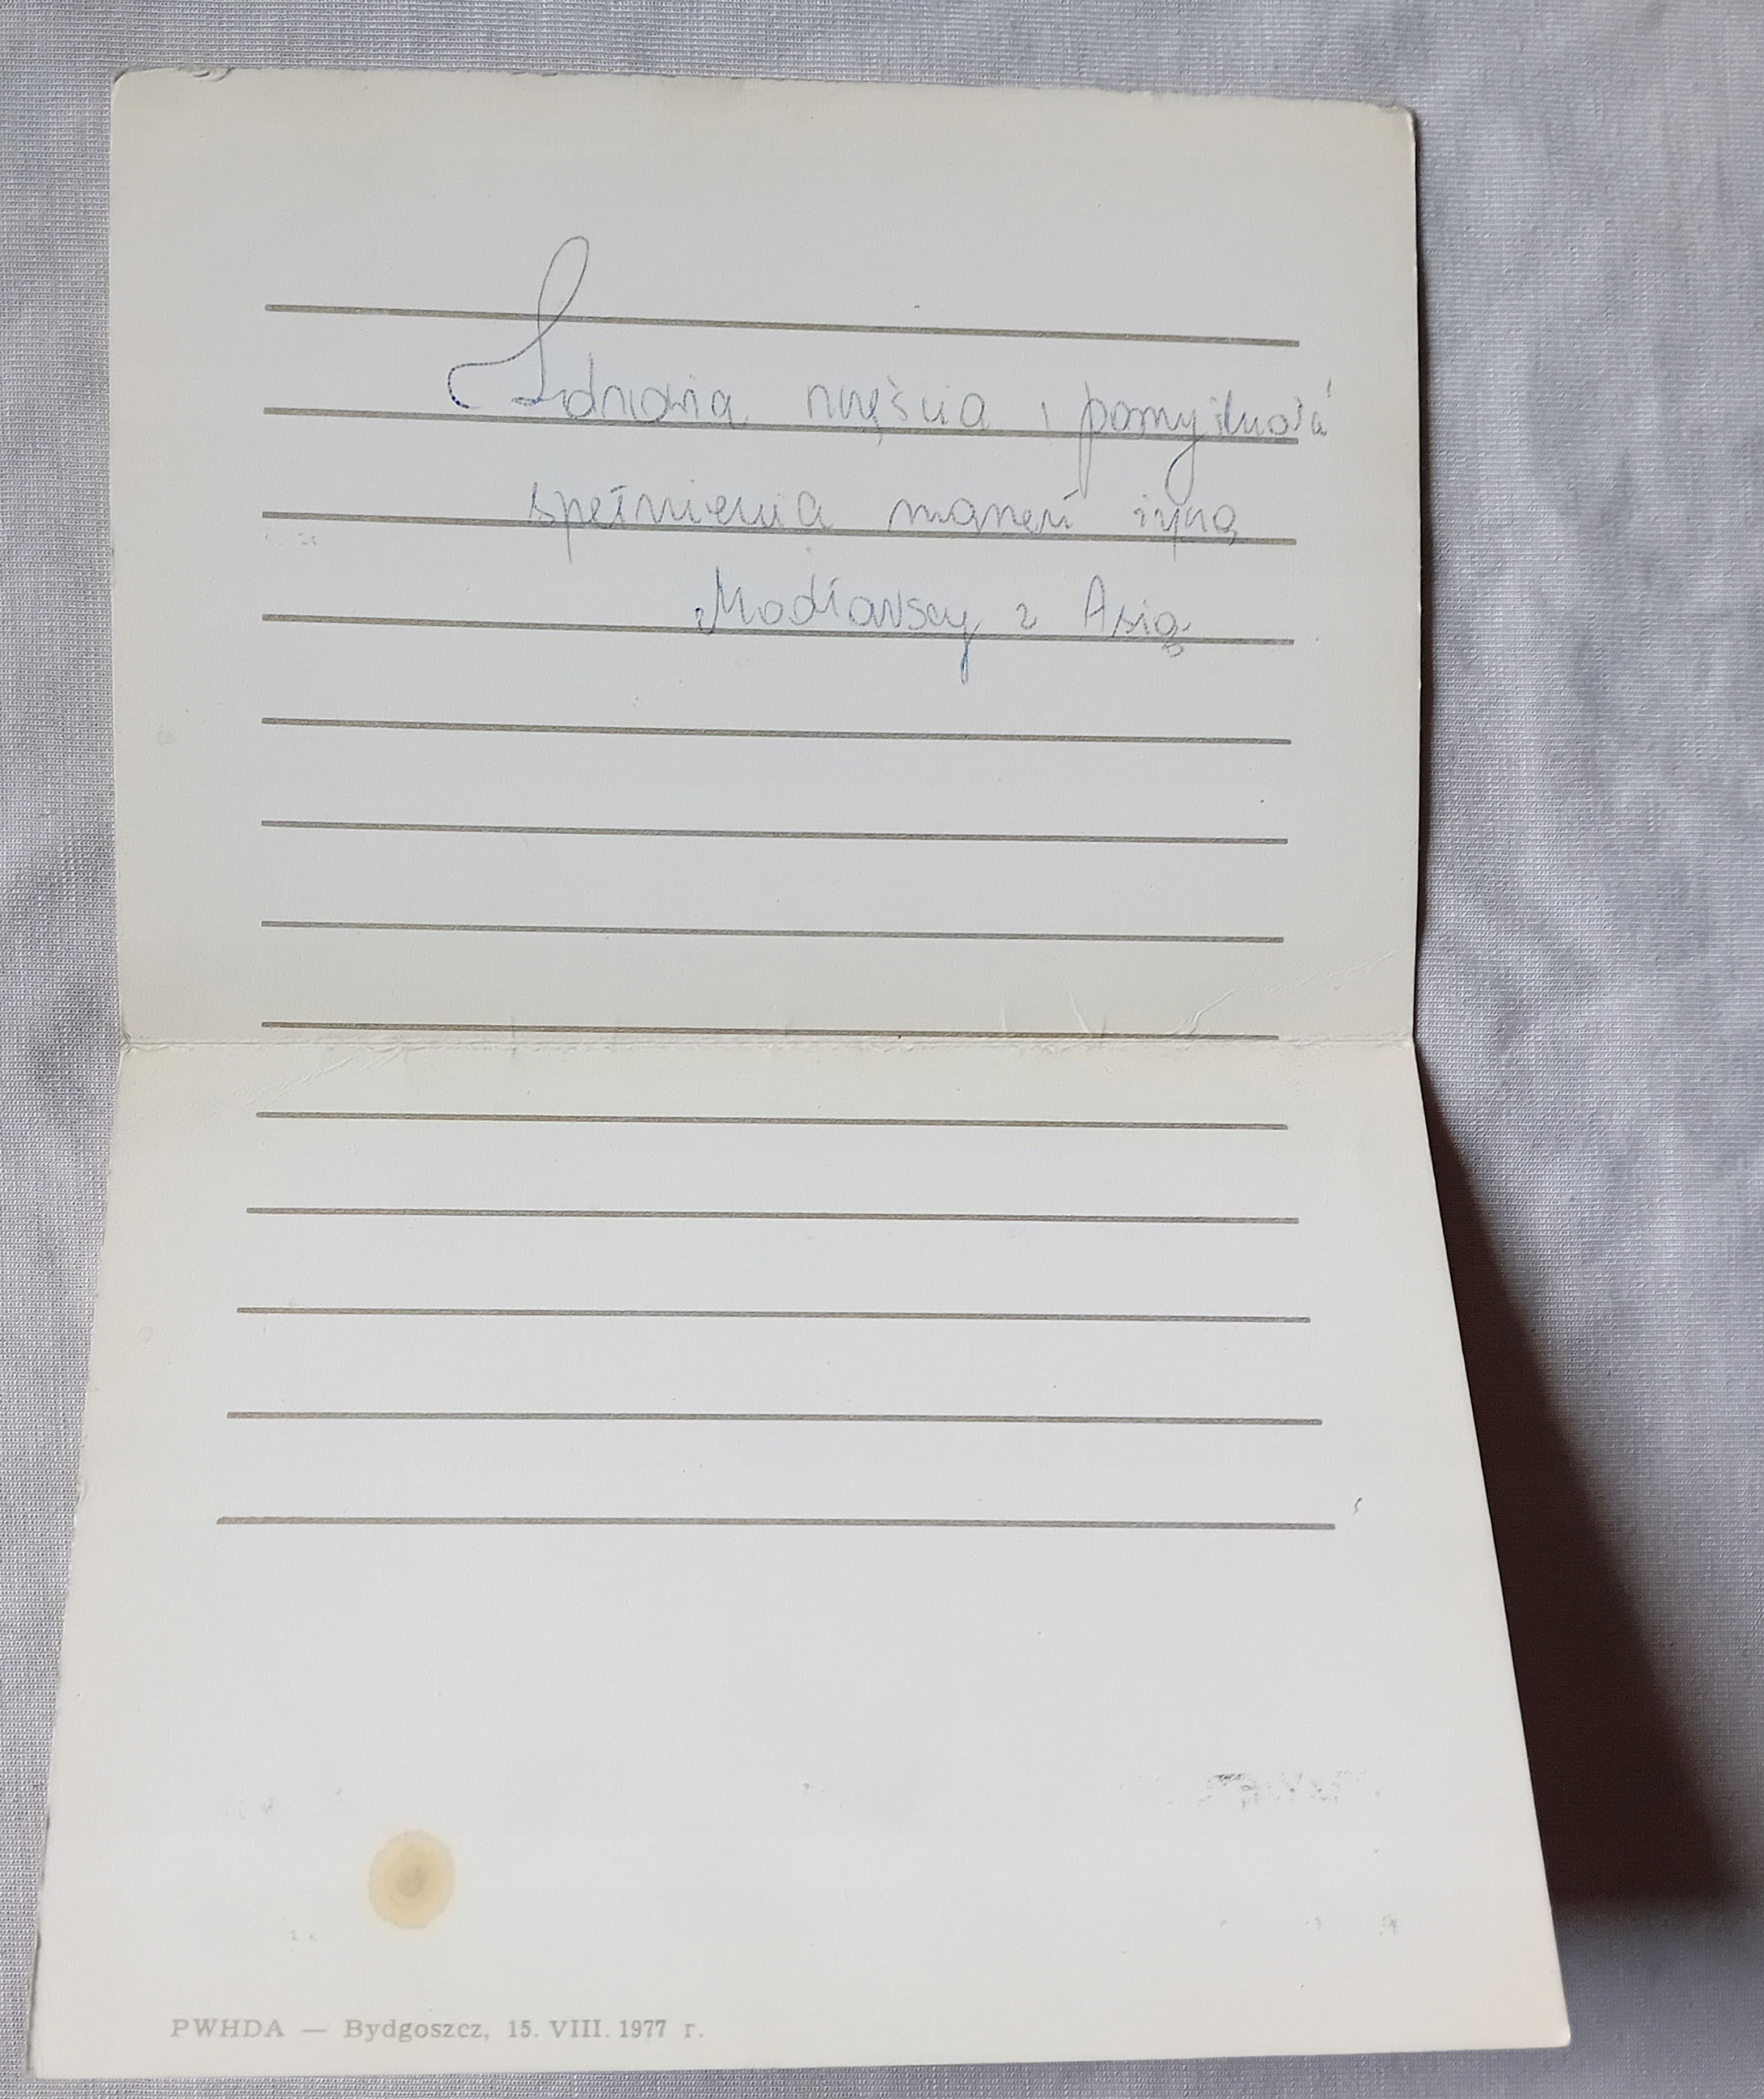 Zdrowia szczęścia i pomyślności
spełnienia marzeń życzą
Modławscy z Asią
PWHDA — Bydgoszcz, 15. VIII. 1977 r.